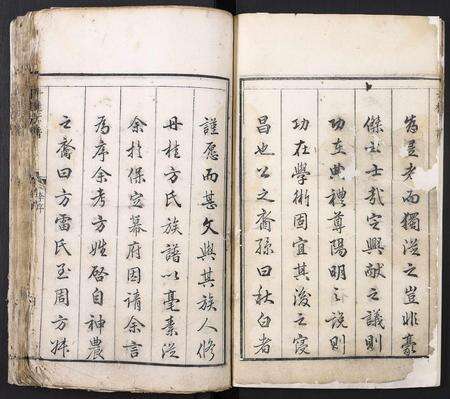 為是者而獨從之豈非豪
傑之士哉定興獻之議則
功在典禮尊陽明之說則
功在學術固宜其後之寖
昌也公之裔孫曰秋白者
謹愿而甚文與其族人修
丹桂方氏族譜以毫素從
余於保定幕府因請余言
為序余考方姓啓自神農
之裔曰方雷氏至周方叔